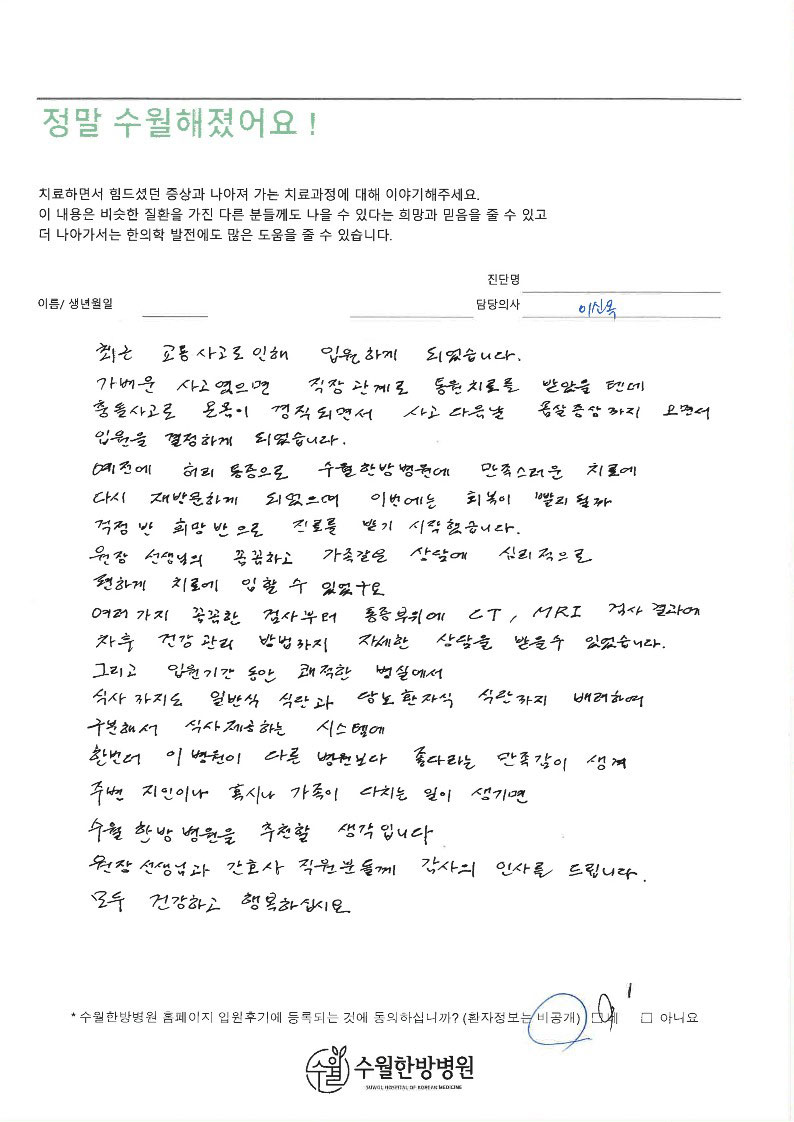 정말 수월해졌어요 !
치료하면서 힘드셨던 증상과 나아져 가는 치료과정에 대해 이야기해주세요.
이 내용은 비슷한 질환을 가진 다른 분들께도 나을 수 있다는 희망과 믿음을 줄 수 있고
더 나아가서는 한의학 발전에도 많은 도움을 줄 수 있습니다.
진단명
이름/ 생년월일 담당의사 이신옥
최근 교통사고로 인해 입원하게 되었습니다.
가벼운 사고였으면 직장관계로 통원치료를 받았을 텐데
충돌사고로 온몸이 경직되면서 사고 다음날 몸살증상까지 오면서
입원을 결정하게 되었습니다.
예전에 허리 통증으로 수월한방병원에 만족스러운 치료에
다시 재방문하게 되었으며 이번에는 회복이 빨리 될까
걱정 반 희망 반으로 진료를 받기 시작했습니다.
원장 선생님의 꼼꼼하고 가족같은 상담에 심리적으로
편하게 치료에 임할 수 있었구요
여러가지 꼼꼼한 검사부터 통증부위에 CT, MRI 검사 결과에
차후 건강 관리 방법까지 자세한 상담을 받을수 있었습니다.
그리고 입원기간 동안 쾌적한 병실에서
식사 까지도 일반식 식단과 당뇨환자식 식단까지 배려하여
구분해서 식사제공하는 시스템에
한번더 이 병원이 다른 병원보다 좋다라는 만족감이 생겨
주변 지인이나 혹시나 가족이 다치는 일이 생기면
수월 한방 병원을 추천할 생각입니다
원장선생님과 간호사 직원분들께 감사의 인사를 드립니다.
모두 건강하고 행복하십시요
* 수월한방병원 홈페이지 입원후기에 등록되는 것에 동의하십니까? (환자정보는 비공개) □ 네 □ 아니요
수월 수월한방병원
SUWOL HOSPITAL OF KOREAN MEDICINE